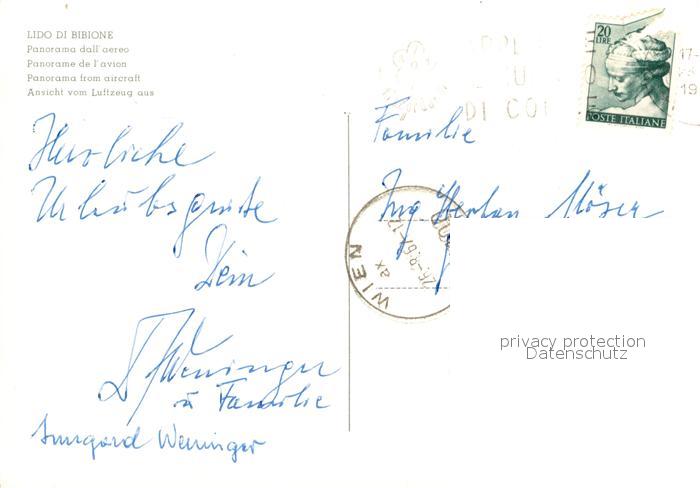 LIDO DI BIBIONE
Panorama dall'aereo
Panorame de l'avion
Panorama from aircraft
Ansicht vom Luftzeug aus
20
LIRE
POSTE ITALIANE
DI CO
17-
19
Herzliche
Urlaubsgrüße
Dein
Weninger
u Familie
Irmgard Weninger
Familie
Ing Möser
WIEN
26.-8.67-17
privacy protection
Datenschutz